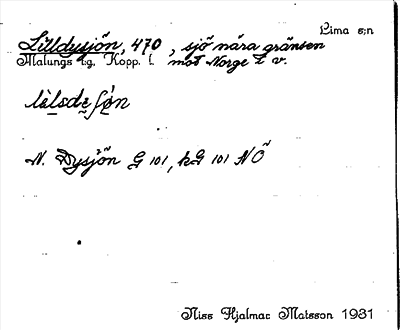 Lima s:n
Lilldysjön, 470, sjö nära gränsen
Malungs t:g. Kopp. l. mot Norge i v.
N. Dysjön G 101, kG 101 NÖ
Niss Hjalmar Matsson 1931